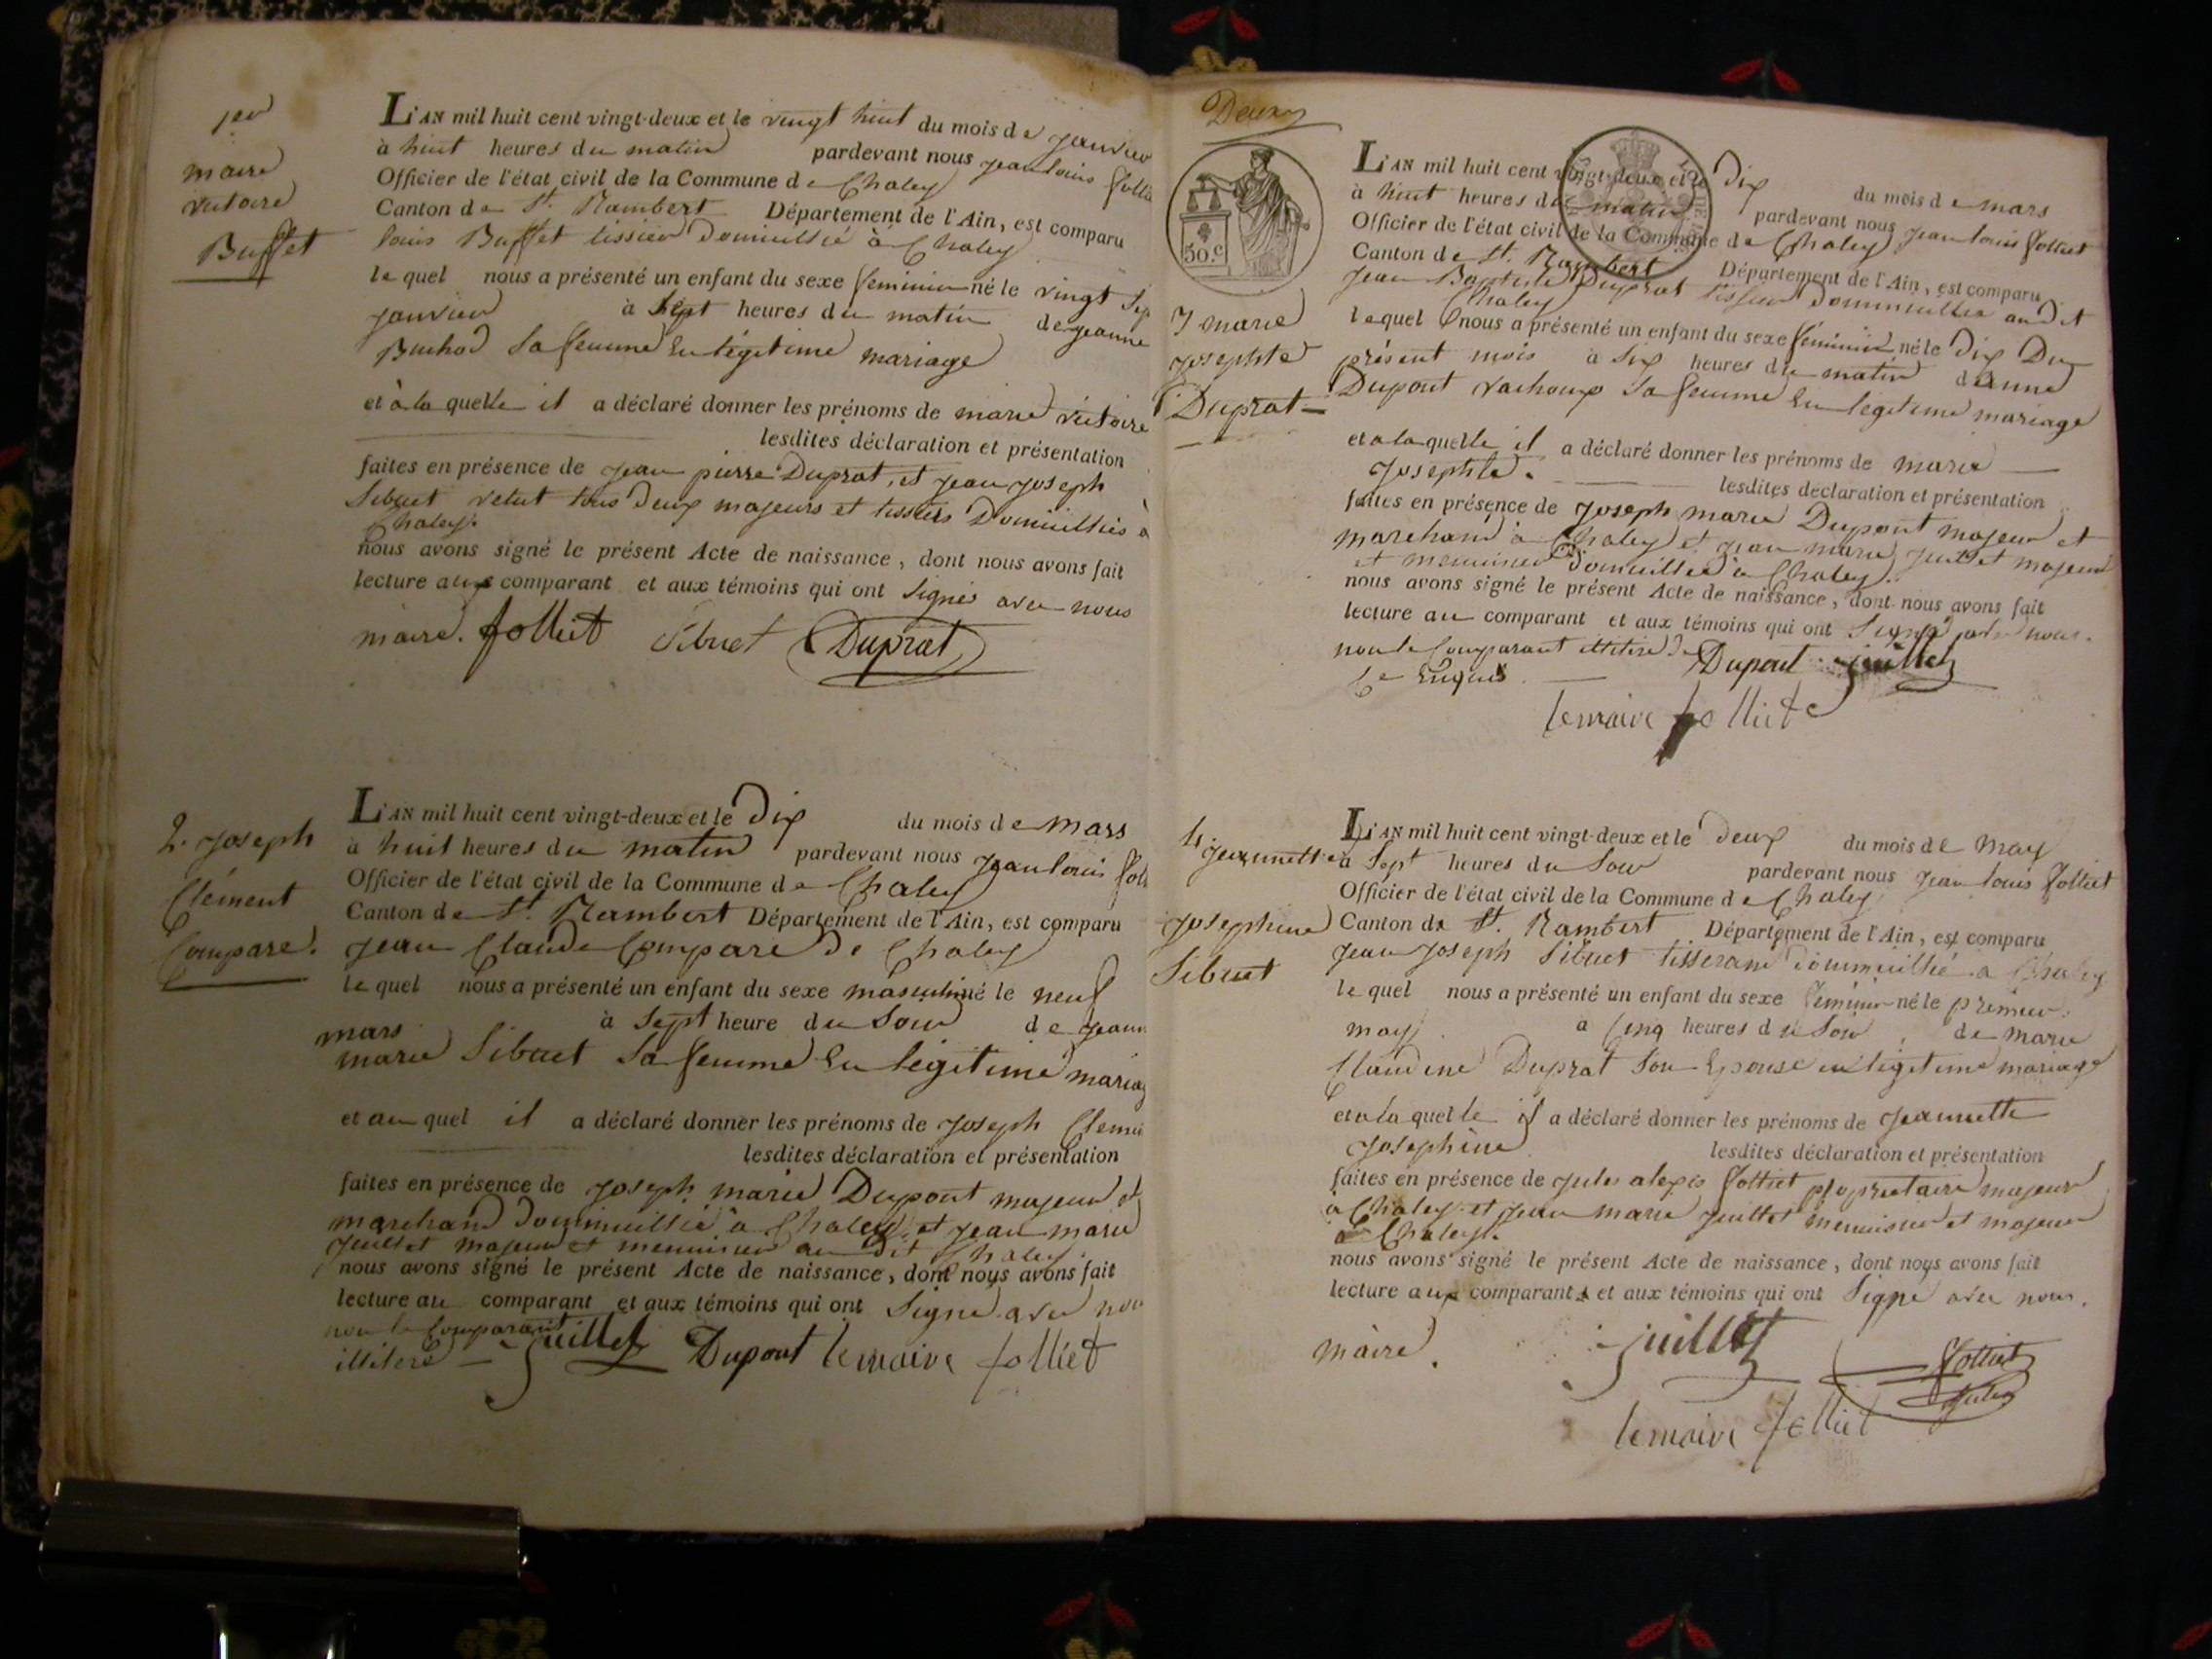 1er
marie
victoire
Buffet
L'AN mil huit cent vingt-deux et le vingt huit du mois de janvier
à huit heures du matin pardevant nous jean louis folli
Officier de l'état civil de la Commune de Chaley
Canton de St. Rambert Département de l'Ain, est comparu
louis Buffet tissier domicillié à Chaley
le quel nous a présenté un enfant du sexe feminin né le vingt sep
janvier à sept heures du matin de jeanne
Buchod sa femme en légitime mariage
et à la quelle il a déclaré donner les prénoms de marie victoire
lesdites déclaration et présentation
faites en présence de jean pierre Duprat, et jean joseph
Sibuet tous deux majeurs et tissiers Domicilliés à
Chaley.
nous avons signé le présent Acte de naissance, dont nous avons fait
lecture aux comparant et aux témoins qui ont signés avec nous
maire. folliet Sibuet Duprat
2. joseph
Clément
Compare.
L'AN mil huit cent vingt-deux et le Dix du mois de mars
à huit heures du matin pardevant nous jean louis foll
Officier de l'état civil de la Commune de Chaley
Canton de St. Rambert Département de l'Ain, est comparu
jean Claude Compare de Chaley
le quel nous a présenté un enfant du sexe masculin né le neuf
mars à sept heure du soir de jeann
marie Sibuet sa femme en légitime mariag
et au quel il a déclaré donner les prénoms de joseph Clemen
lesdites déclaration et présentation
faites en présence de joseph marie Dupont majeur et
marchand domicillié à Chaley et jean marie
juillet majeur et menuisier au dit Chaley.
nous avons signé le présent Acte de naissance, dont nous avons fait
lecture au comparant et aux témoins qui ont signé avec nou
non le Comparant
illiteré juillet Dupont lemaire folliet
Deux
50.c
3 marie
josephte
Duprat
L'AN mil huit cent vingt-deux et le dix du mois de mars
à huit heures du matin pardevant nous jean louis folliet
Officier de l'état civil de la Commune de Chaley
Canton de St. Rambert Département de l'Ain, est comparu
jean Baptiste Duprat tissier domicillié au dit
Chaley
lequel nous a présenté un enfant du sexe féminin né le dix Du
présent mois à six heures du matin d'anne
Dupont vachoux sa femme en légitime mariage
et à la quelle il a déclaré donner les prénoms de marie
josephte.
lesdites declaration et présentation
faites en présence de joseph marie Dupont majeur et
marchand à Chaley et jean marie juillet majeur
et menuisier domicillié à Chaley.
nous avons signé le présent Acte de naissance, dont nous avons fait
lecture au comparant et aux témoins qui ont signé avec nous.
non le Comparant illitéré de
ce Enquis Dupont juillet
lemaire folliet
4 jeannette
josephine
Sibuet
L'AN mil huit cent vingt-deux et le deux du mois de may
à sept heures du soir pardevant nous jean louis folliet
Officier de l'état civil de la Commune de Chaley
Canton de St. Rambert Département de l'Ain, est comparu
jean joseph Sibuet tisserand domicillié a Chaley
le quel nous a présenté un enfant du sexe feminin né le premier
may à cinq heures du soir de marie
Claudine Duprat son Epouse en légitime mariage
et à la quelle il a déclaré donner les prénoms de jeannette
josephine
lesdites déclaration et présentation
faites en présence de jules alexis folliet proprietaire majeur
à Chaley et jean marie juillet menuisier et majeur
à Chaley.
nous avons signé le présent Acte de naissance, dont nous avons fait
lecture aux comparants et aux témoins qui ont signé avec nous.
maire. juillet folliet
jules
lemaire folliet